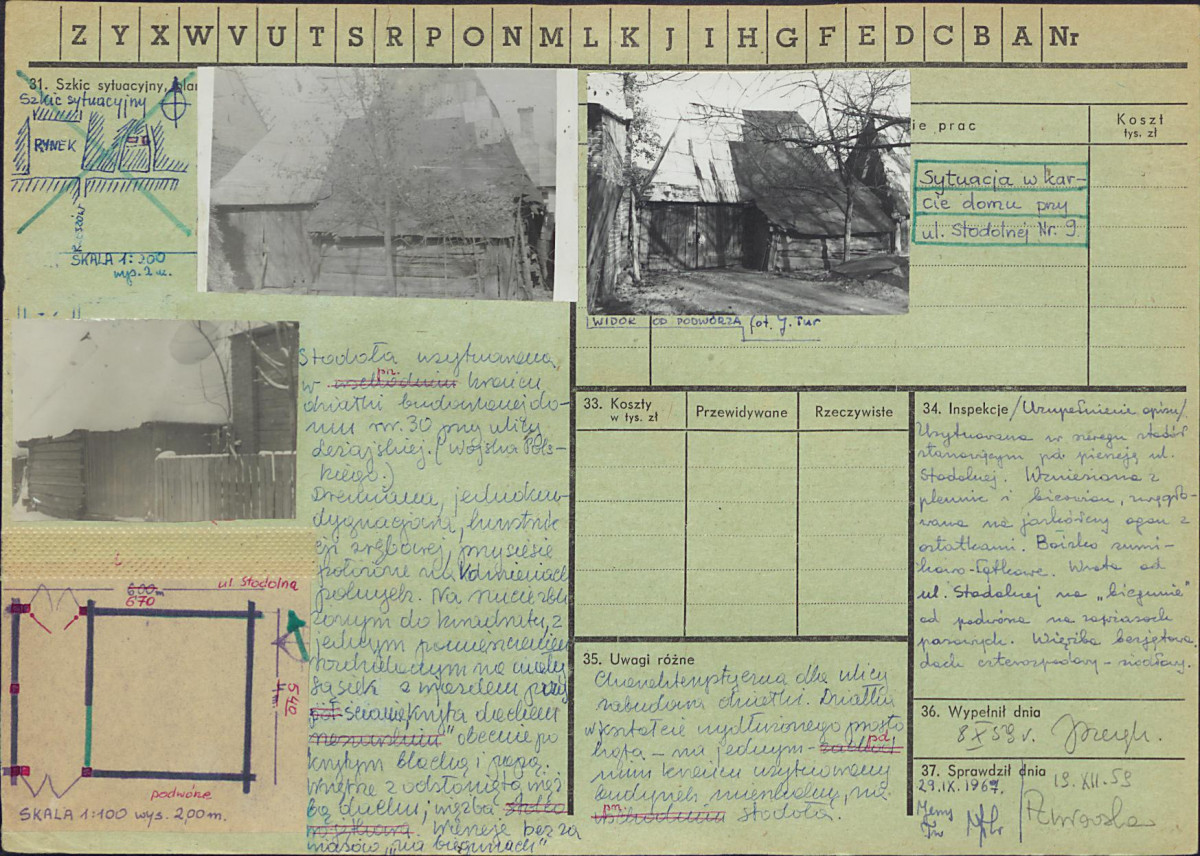 Z Y X W V U T S R P O N M L K J I H G F E D C B A Nr
31. Szkic sytuacyjny, plan
Szkic sytuacyjny
RYNEK
SKALA 1:200
wys. 2 m.
ie prac
Koszt
tys. zł
Sytuacja w kar-
cie domu przy
ul. Stodolnej Nr. 9
WIDOK OD PODWÓRZA fot. J. Tur
Stodoła usytuowana
w pn. wschodnim krańcu
działki budowlanej do-
mu nr. 30 przy ulicy
Leżajskiej. (Wojska Pols-
kiego.)
Drewniana, jednokon-
dygnacjowa, konstruk-
cji zrębowej, przyciesie
położone na kamieniach
polnych. Na rzucie zbli-
żonym do kwadratu, z
jednym pomieszczeniem
rozkładowym na
sąsiek z wjazdem przy
ścianie kryta dachem
obecnie po-
krytym blachą i papą.
Wnętrze z odsłoniętą więź-
bą dachu; więźba
. Wierzeje bez za-
wiasów, "na biegunach"
ul. Stodolna
600 m
670
540
podwórze
SKALA 1:100 wys. 2,00 m.
33. Koszty
w tys. zł
Przewidywane
Rzeczywiste
34. Inspekcje /Uzupełnienie opisu/.
Usytuowana w szeregu stodół
stanowiącym pd. pierzeję ul.
Stodolnej. Wzniesiona z
płennic i bierwion, zwęgło-
wana na jaskółczy ogon z
ostatkami. Boisko sumi-
kowo-łątkowe. Wrota od
ul. Stodolnej na "biegunie"
od podwórza na zawiasach
pasowych. Więźba bezjętkowa
dach czterospadowy - siodłowy.
35. Uwagi różne
Charakterystyczna dla ulicy
zabudowa działki. Działka
w kształcie wydłużonego prosto-
kąta - na jednym - pd.
nim krańcu usytuowany
budynek mieszkalny, na
pn. wschodnim stodoła.
36. Wypełnił dnia
8 X 59 r.
37. Sprawdził dnia
29.IX.1967.
19.XII.59